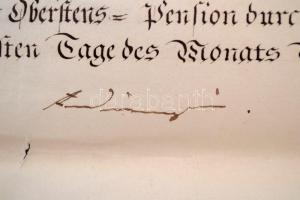 Oberstens= Pension durc
sten Tage des Monats
darabanth